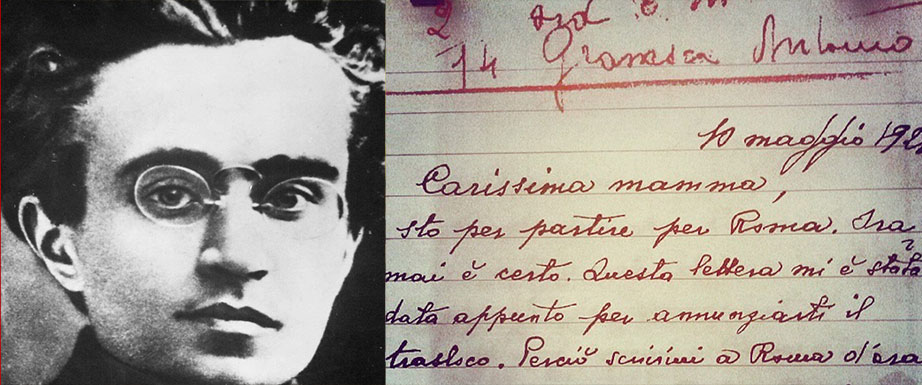 2
14 Gramsci Antonio
10 maggio 192
Carissima mamma,
sto per partire per Roma. Ora
mai è certo. Questa lettera mi è stata
data appunto per annunziarti il
trasloco. Perciò scrivimi a Roma d'ora